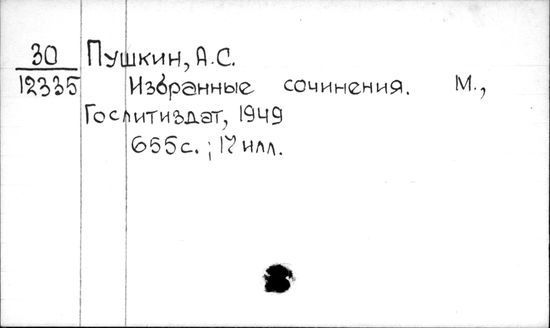 30 Пушкин, А.С.
12335 Избранные сочинения. М.,
Гослитиздат, 1949
655с.; 17 илл.